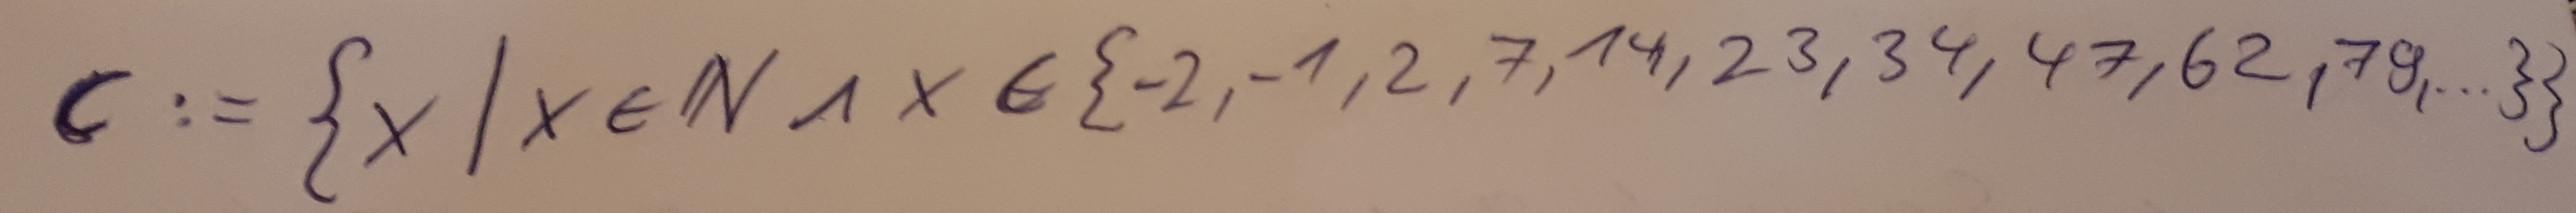 C := {x | x ∈ ℕ ∧ x ∈ {-2, -1, 2, 7, 14, 23, 34, 47, 62, 79, ...}}